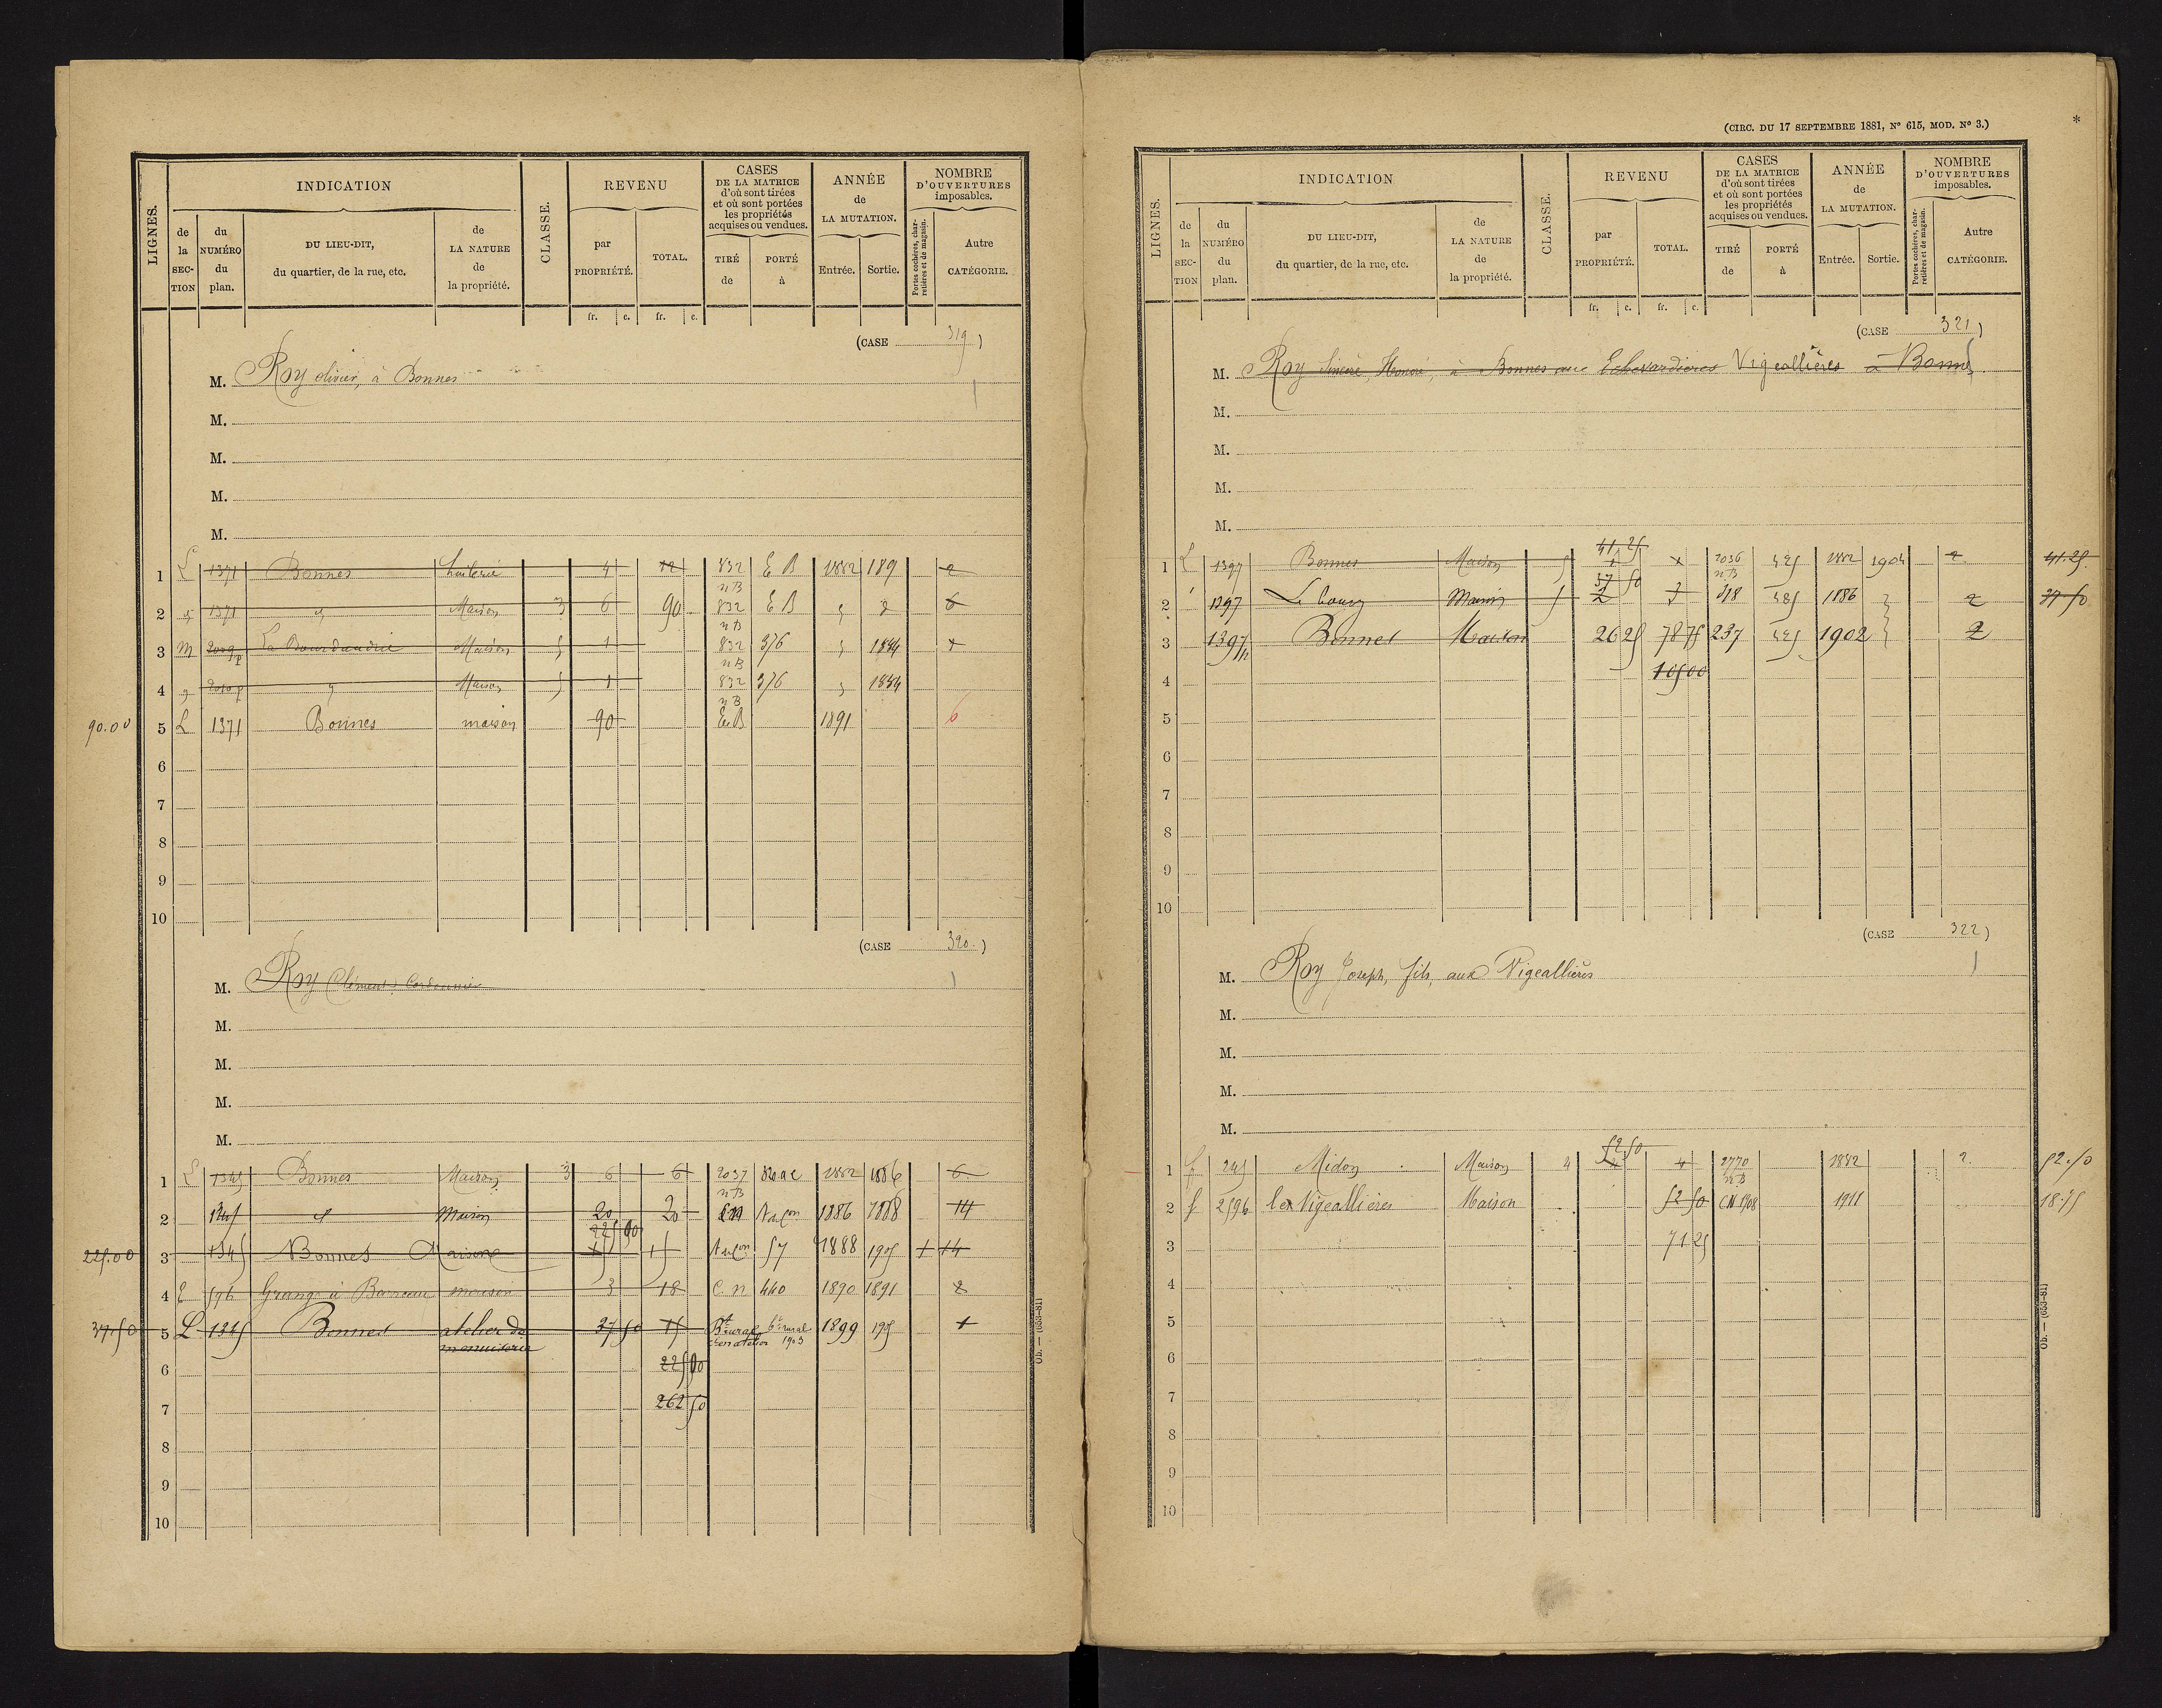 LIGNES.
INDICATION
de la SECTION
du NUMÉRO du plan.
DU LIEU-DIT, du quartier, de la rue, etc.
de LA NATURE de la propriété.
CLASSE.
REVENU
par PROPRIÉTÉ.
TOTAL.
fr. c. fr. c.
CASES DE LA MATRICE d'où sont tirées et où sont portées les propriétés acquises ou vendues.
TIRÉ de
PORTÉ à
ANNÉE de LA MUTATION.
Entrée. Sortie.
NOMBRE D'OUVERTURES imposables.
Portes cochères, charretières et de magasin.
Autre CATÉGORIE.
(CASE 319)
M. Roy olivier, à Bonnes
M.
M.
M.
M.
1 L 1371 Bonnes 4 72 832 E B 1882 189 2
nB
2 1371 Maison 3 6 90 832 E B 6
nB
3 M 2009p La Bourdaudrie Maison 1 832 376 1884
nB
4 2010p Maison 1 832 376 1884
nB
90.00 5 L 1371 Bonnes maison 90 E B 1891 6
6
7
8
9
10
(CASE 320.)
M. Roy Clément, Cordonnier
M.
M.
M.
M.
1 L 1345 Bonnes Maison 3 6 6 2037 1882 1886 6
nB
2 1345 Maison 20 20 CN 1886 1888 14
225 00
225.00 3 1345 Bonnes Maison 15 57 1888 1905 1 14
4 E 596 Grange à Barreau maison 3 18 C.n 440 1890 1891 2
37.50 5 L 1345 Bonnes atelier de menuiserie 37 50 15 Bt rural bt rural 1903 1899 1905 1
6 225 00
7 262 50
8
9
10
Ob. — (653-81)
(CIRC. DU 17 SEPTEMBRE 1881, No 615, MOD. No 3.)
*
LIGNES.
INDICATION
de la SECTION
du NUMÉRO du plan.
DU LIEU-DIT, du quartier, de la rue, etc.
de LA NATURE de la propriété.
CLASSE.
REVENU
par PROPRIÉTÉ.
TOTAL.
fr. c. fr. c.
CASES DE LA MATRICE d'où sont tirées et où sont portées les propriétés acquises ou vendues.
TIRÉ de
PORTÉ à
ANNÉE de LA MUTATION.
Entrée. Sortie.
NOMBRE D'OUVERTURES imposables.
Portes cochères, charretières et de magasin.
Autre CATÉGORIE.
(CASE 321)
M. Roy Sincère, Honoré, à Bonnes aux Vigeallières à Bonnes
M.
M.
M.
M.
41 25
1 L 1397 Bonnes Maison 5 2036 525 1882 1904 2 41.25
nB
37 50
2 1397 Le bourg Maison 5 2 318 1886 2 37 50
3 1397 Bonnes Maison 26 25 78 75 237 525 1902 2
4 105 00
5
6
7
8
9
10
(CASE 322)
M. Roy Joseph, fils, aux Vigeallières
M.
M.
M.
M.
52 50
1 245 Midon Maison 4 4 4 2770 1882 2 52.50
nB
2 f 2596 les Vigeallières Maison 52 50 CN 1908 1911 18.75
3 71 25
4
5
6
7
8
9
10
Ob. — (653-81)